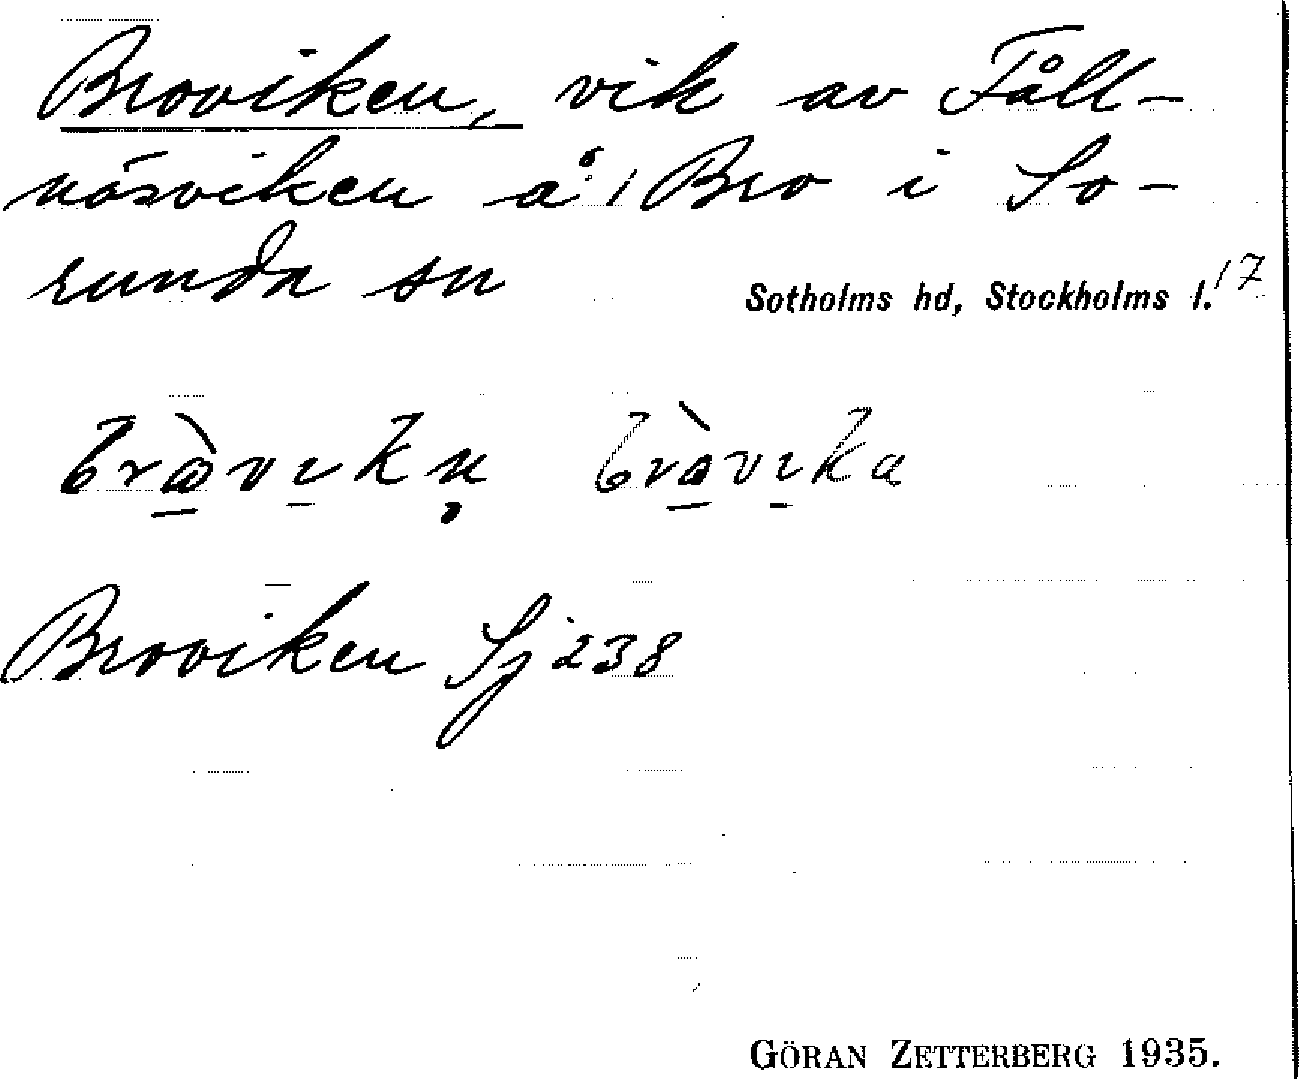 Broviken, vik av Fåll-
näsviken å 1 Bro i So-
runda sn
Sotholms hd, Stockholms l. 17
Broviken Sj 238
GÖRAN ZETTERBERG 1935.